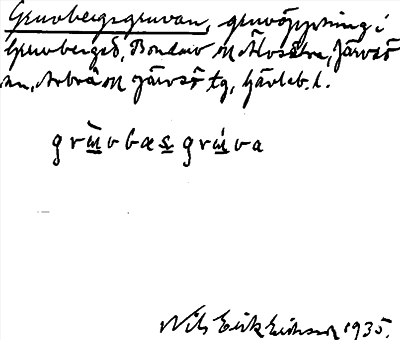 Gruvbergsgruvan, gruvöppning i
Gruvberget, Bondarv och Älvsätra, Järvsö
sn, Arbrå och Järvsö tg, Gävleb. l.
grùvbæsgrúva
Nils Erik Eriksson 1935.